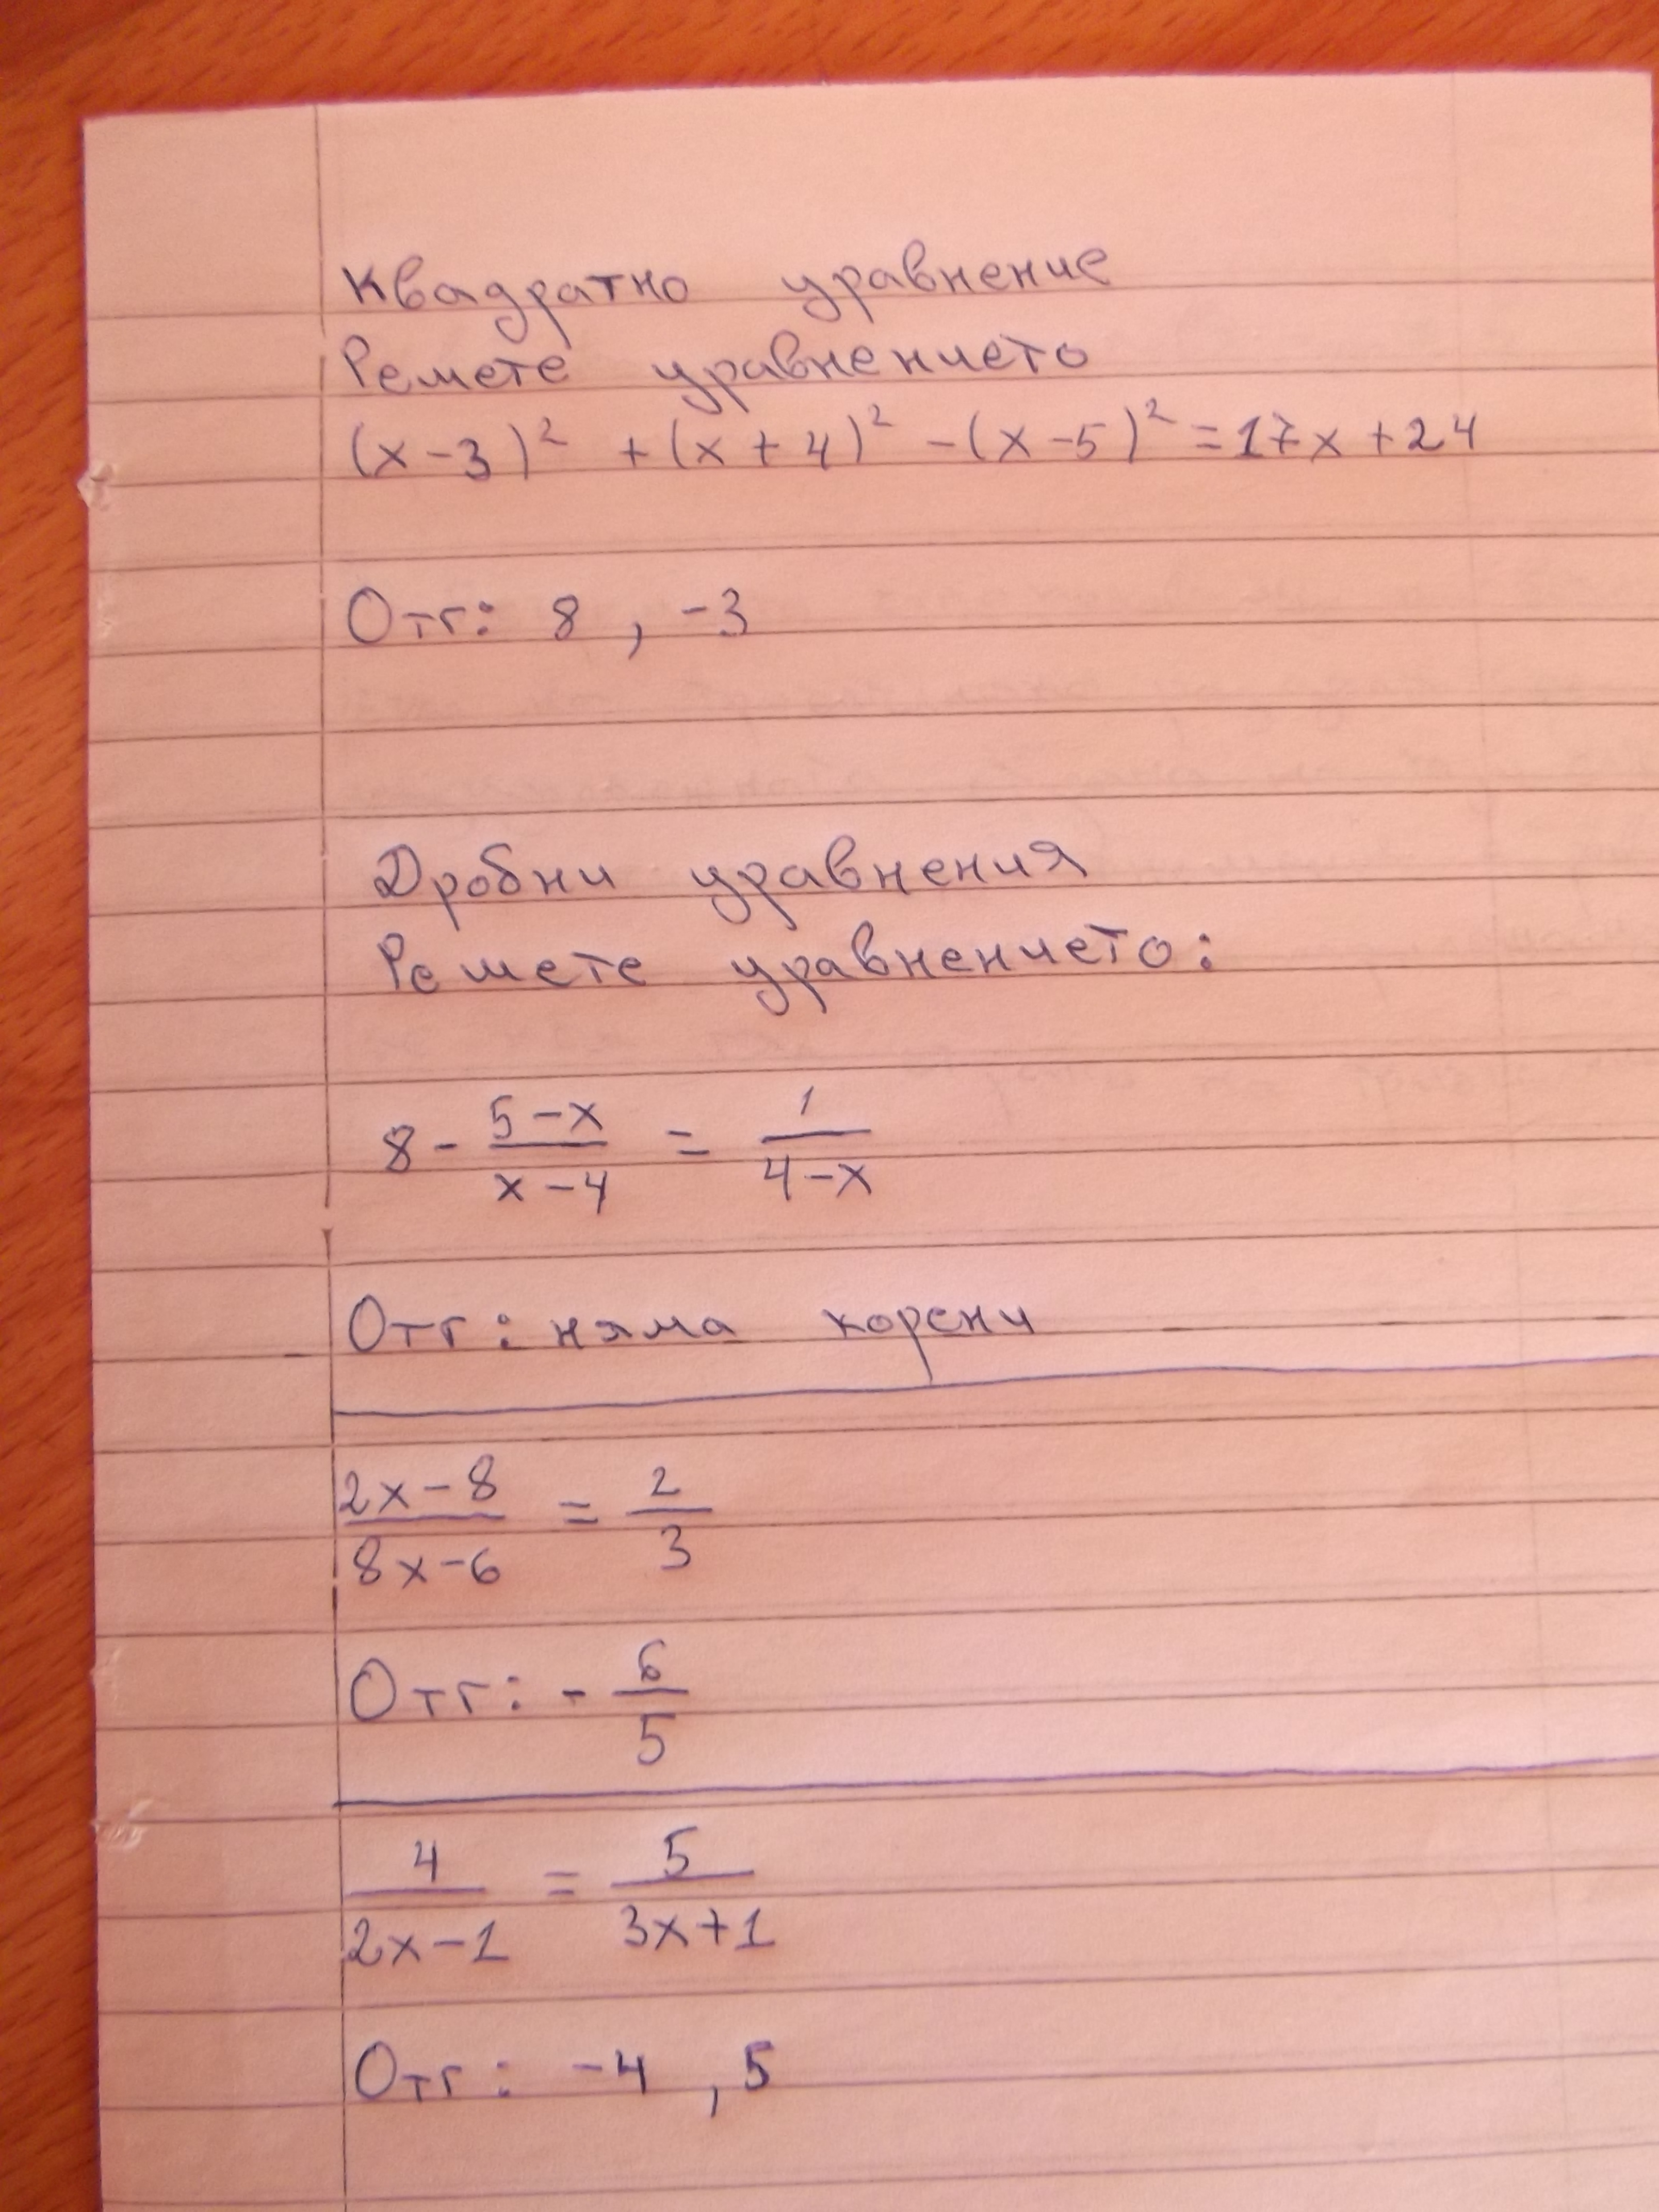 Квадратно уравнение
Решете уравнението
(x-3)² +(x+4)² -(x-5)²=17x+24
Отг: 8 , -3
Дробни уравнения
Решете уравнението:
8 - (5-x)/(x-4) = 1/(4-x)
Отг: няма корени
(2x-8)/(8x-6) = 2/3
Отг: - 6/5
4/(2x-1) = 5/(3x+1)
Отг: -4 , 5